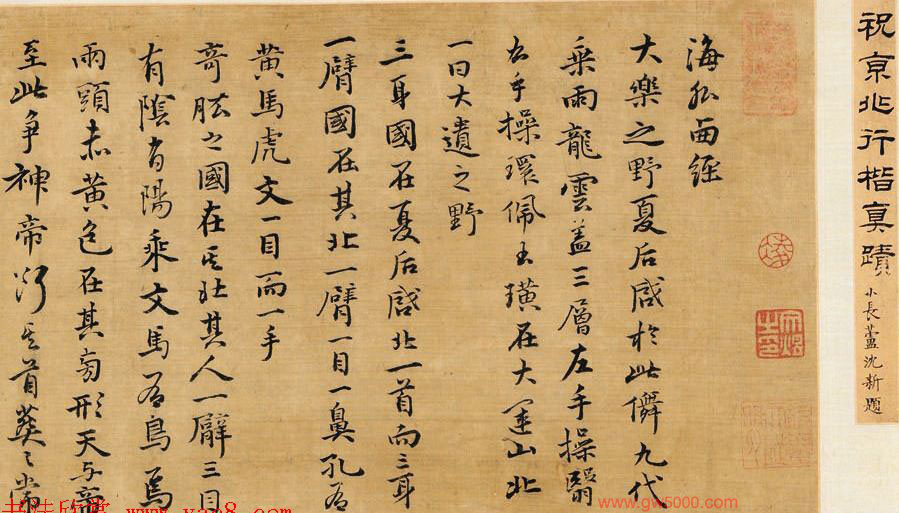 祝京兆行楷真蹟
小長蘆沈新題
海外西經
大樂之野夏后啟於此儛九代
乘兩龍雲盖三層左手操翳
右手操環佩玉璜在大運山北
一曰大遺之野
三身國在夏后啟北一首而三身
一臂國在其北一臂一目一鼻孔有
黄馬虎文一目而一手
奇肱之國在其北其人一臂三目
有陰有陽乘文馬有鳥焉
兩頭赤黄色在其旁形天与帝
至此争神帝斷其首葬之常
书法欣赏 www.yac8.com
www.gw5000.com